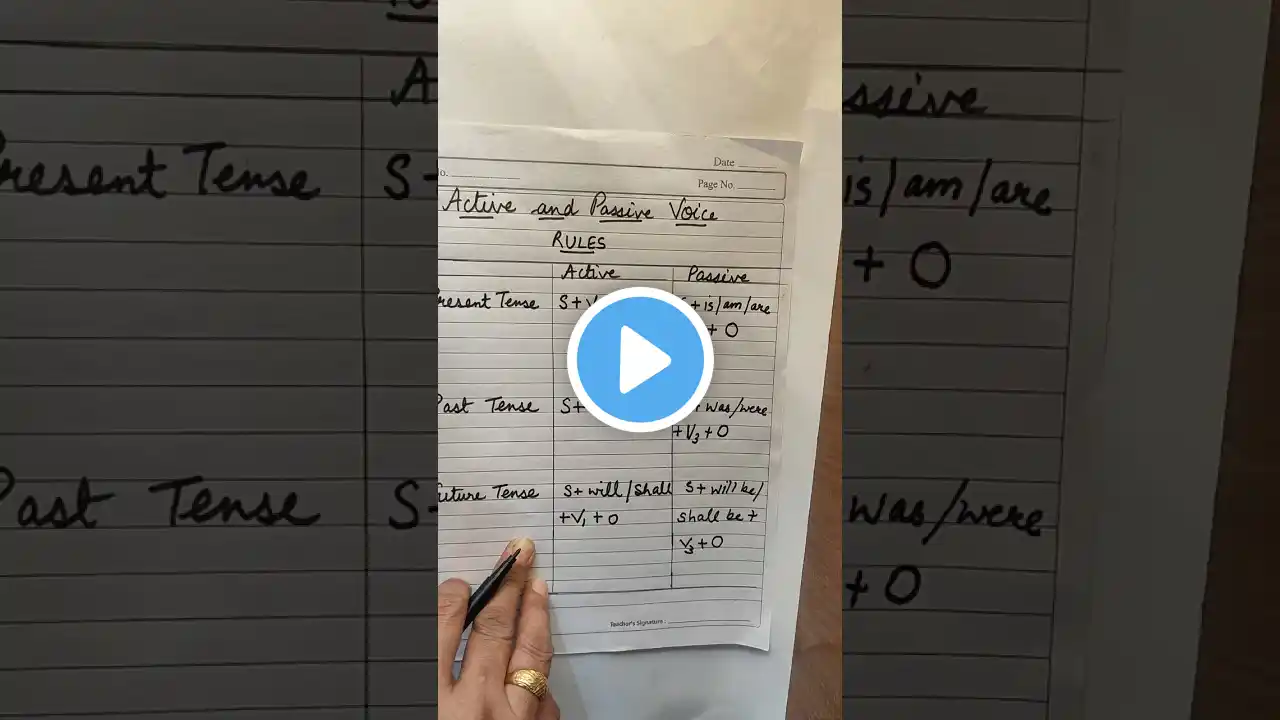 Date
o.
Page No.
Active and Passive Voice
RULES
Active Passive
Present Tense S+V + is/am/are
+ O
Past Tense S+ was/were
+V3+O
Future Tense S+ will/shall S+ will be/
+V1+O shall be +
V3+O
Teacher's Signature :